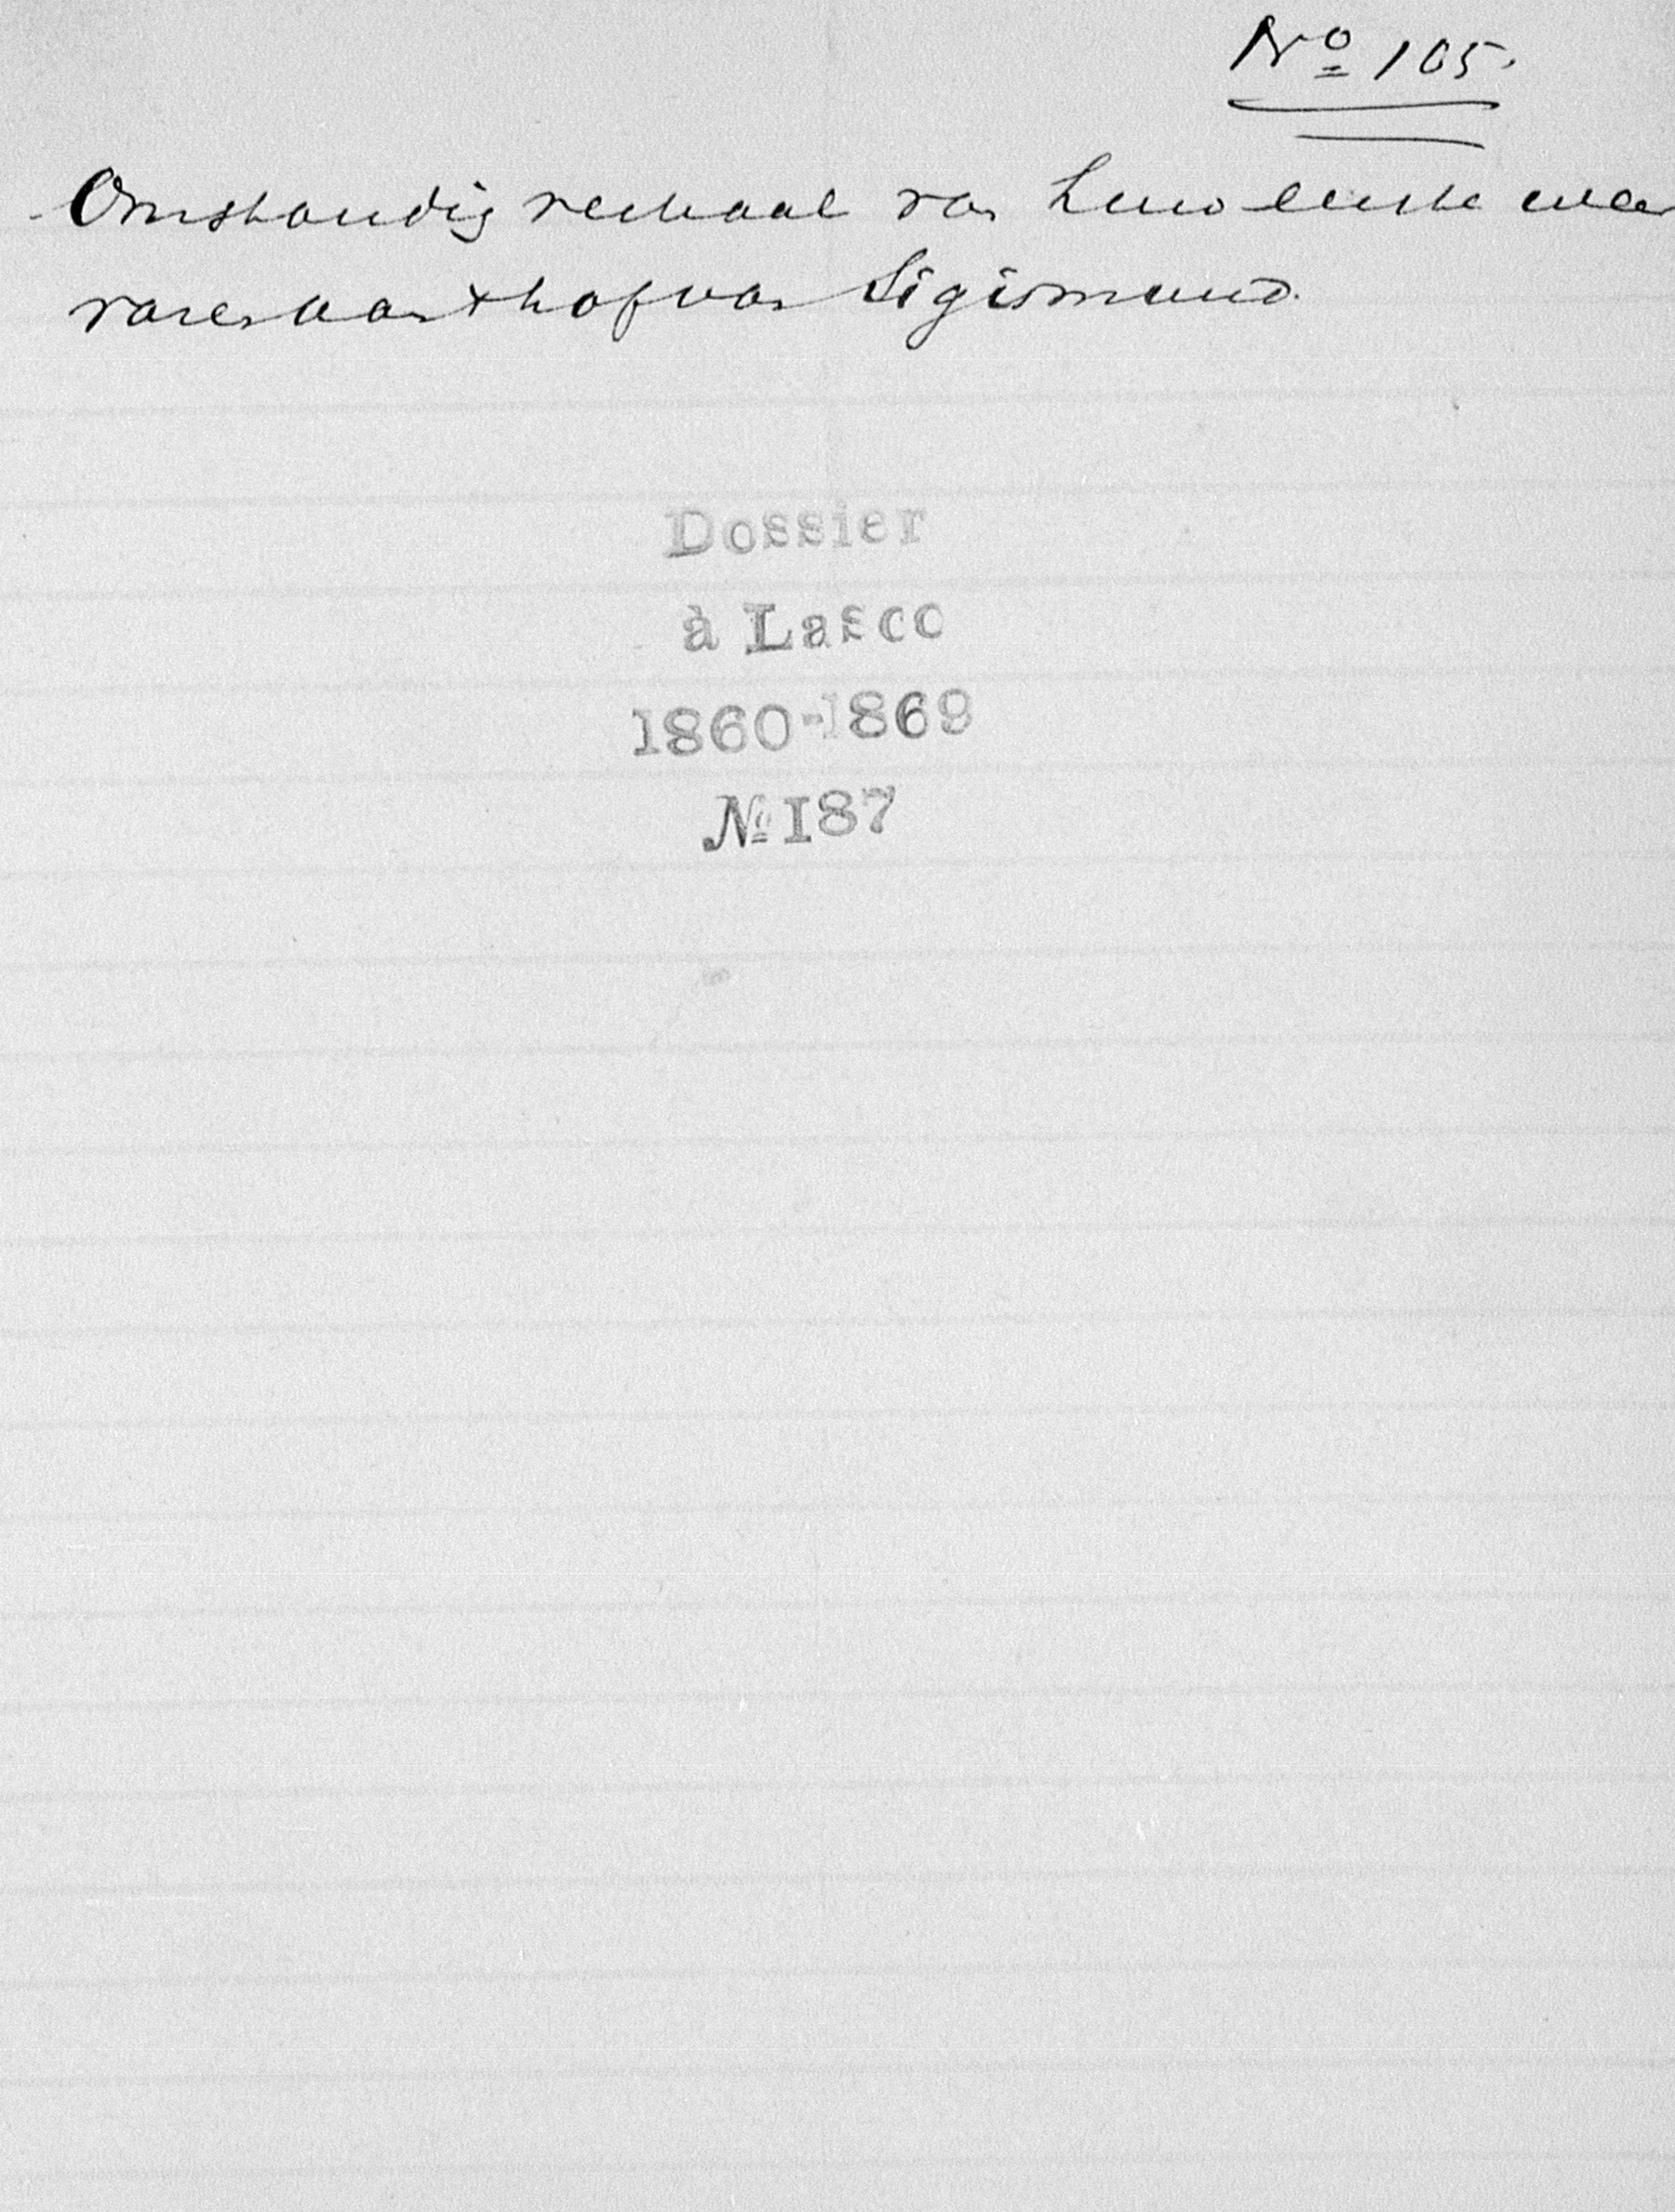 Nº 105.
Omstandig verhaal van zijn eerste weder
varen aan 't hof van Sigismund.
Dossier
à Lasco
1860-1869
Nº 187